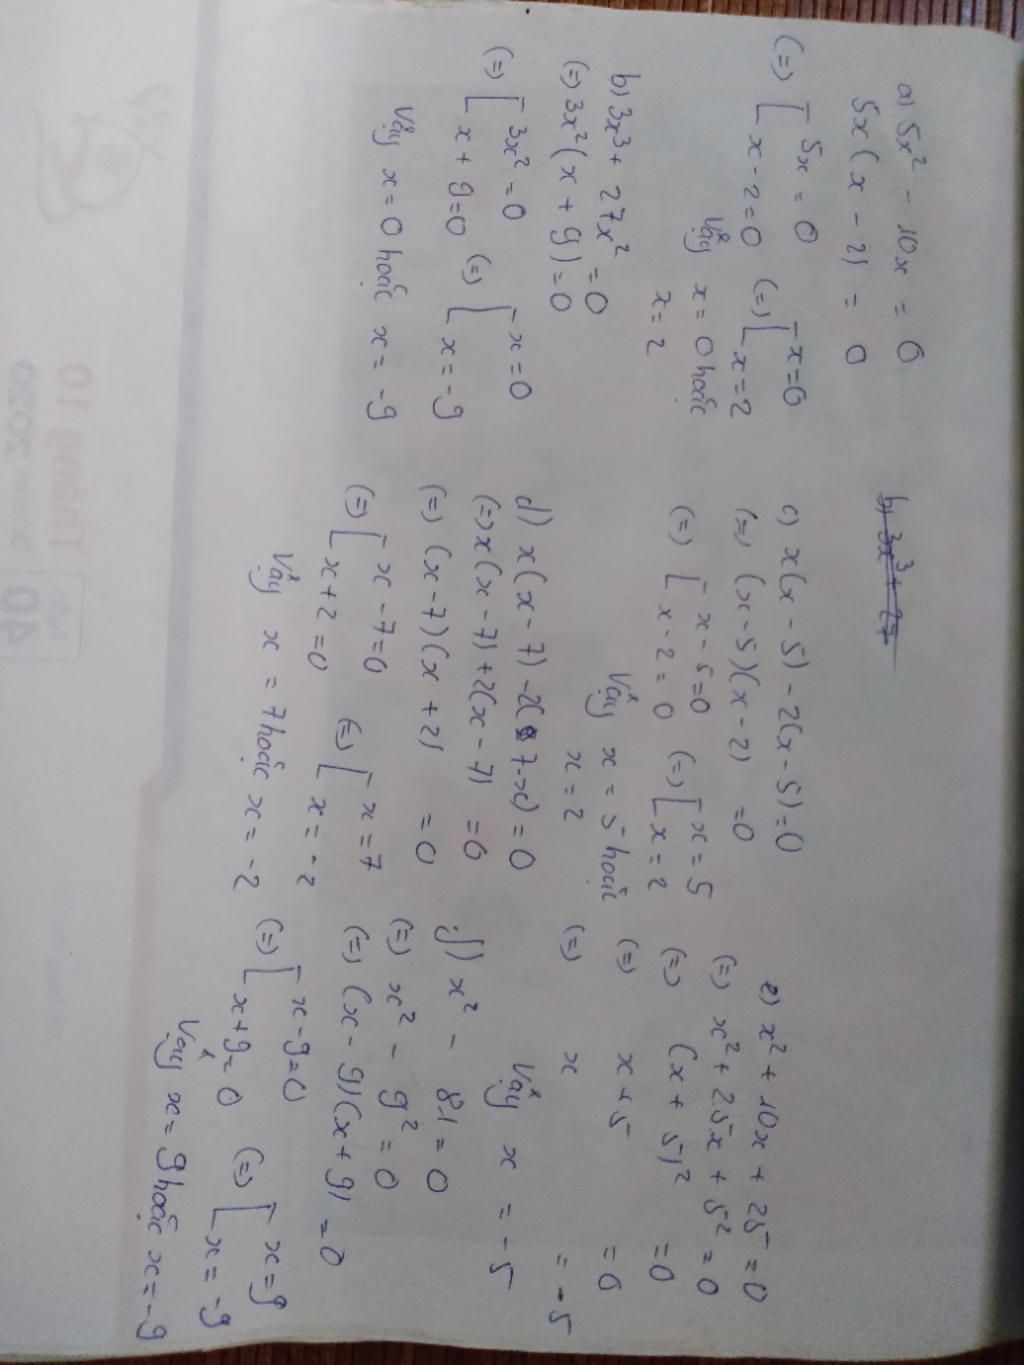 a) 5x² - 10x = 0
5x(x - 2) = 0
(=) [ 5x = 0 (=) [ x = 0
x - 2 = 0 x = 2
Vậy x = 0 hoặc
x = 2
b) 3x³ + 27x² = 0
(=) 3x²(x + 9) = 0
(=) [ 3x² = 0 (=) [ x = 0
x + 9 = 0 x = -9
Vậy x = 0 hoặc x = -9
b) 3x³ + 27
c) x(x - 5) - 2(x - 5) = 0
(=) (x - 5)(x - 2) = 0
(=) [ x - 5 = 0 (=) [ x = 5
x - 2 = 0 x = 2
Vậy x = 5 hoặc
x = 2
d) x(x - 7) - 2(7 - x) = 0
(=) x(x - 7) + 2(x - 7) = 0
(=) (x - 7)(x + 2) = 0
(=) [ x - 7 = 0 (=) [ x = 7
x + 2 = 0 x = -2
Vậy x = 7 hoặc x = -2
e) x² + 10x + 25 = 0
(=) x² + 2.5x + 5² = 0
(=) (x + 5)² = 0
(=) x + 5 = 0
(=) x = -5
Vậy x = -5
f) x² - 81 = 0
(=) x² - 9² = 0
(=) (x - 9)(x + 9) = 0
(=) [ x - 9 = 0 (=) [ x = 9
x + 9 = 0 x = -9
Vậy x = 9 hoặc x = -9
Tháng 10
2020